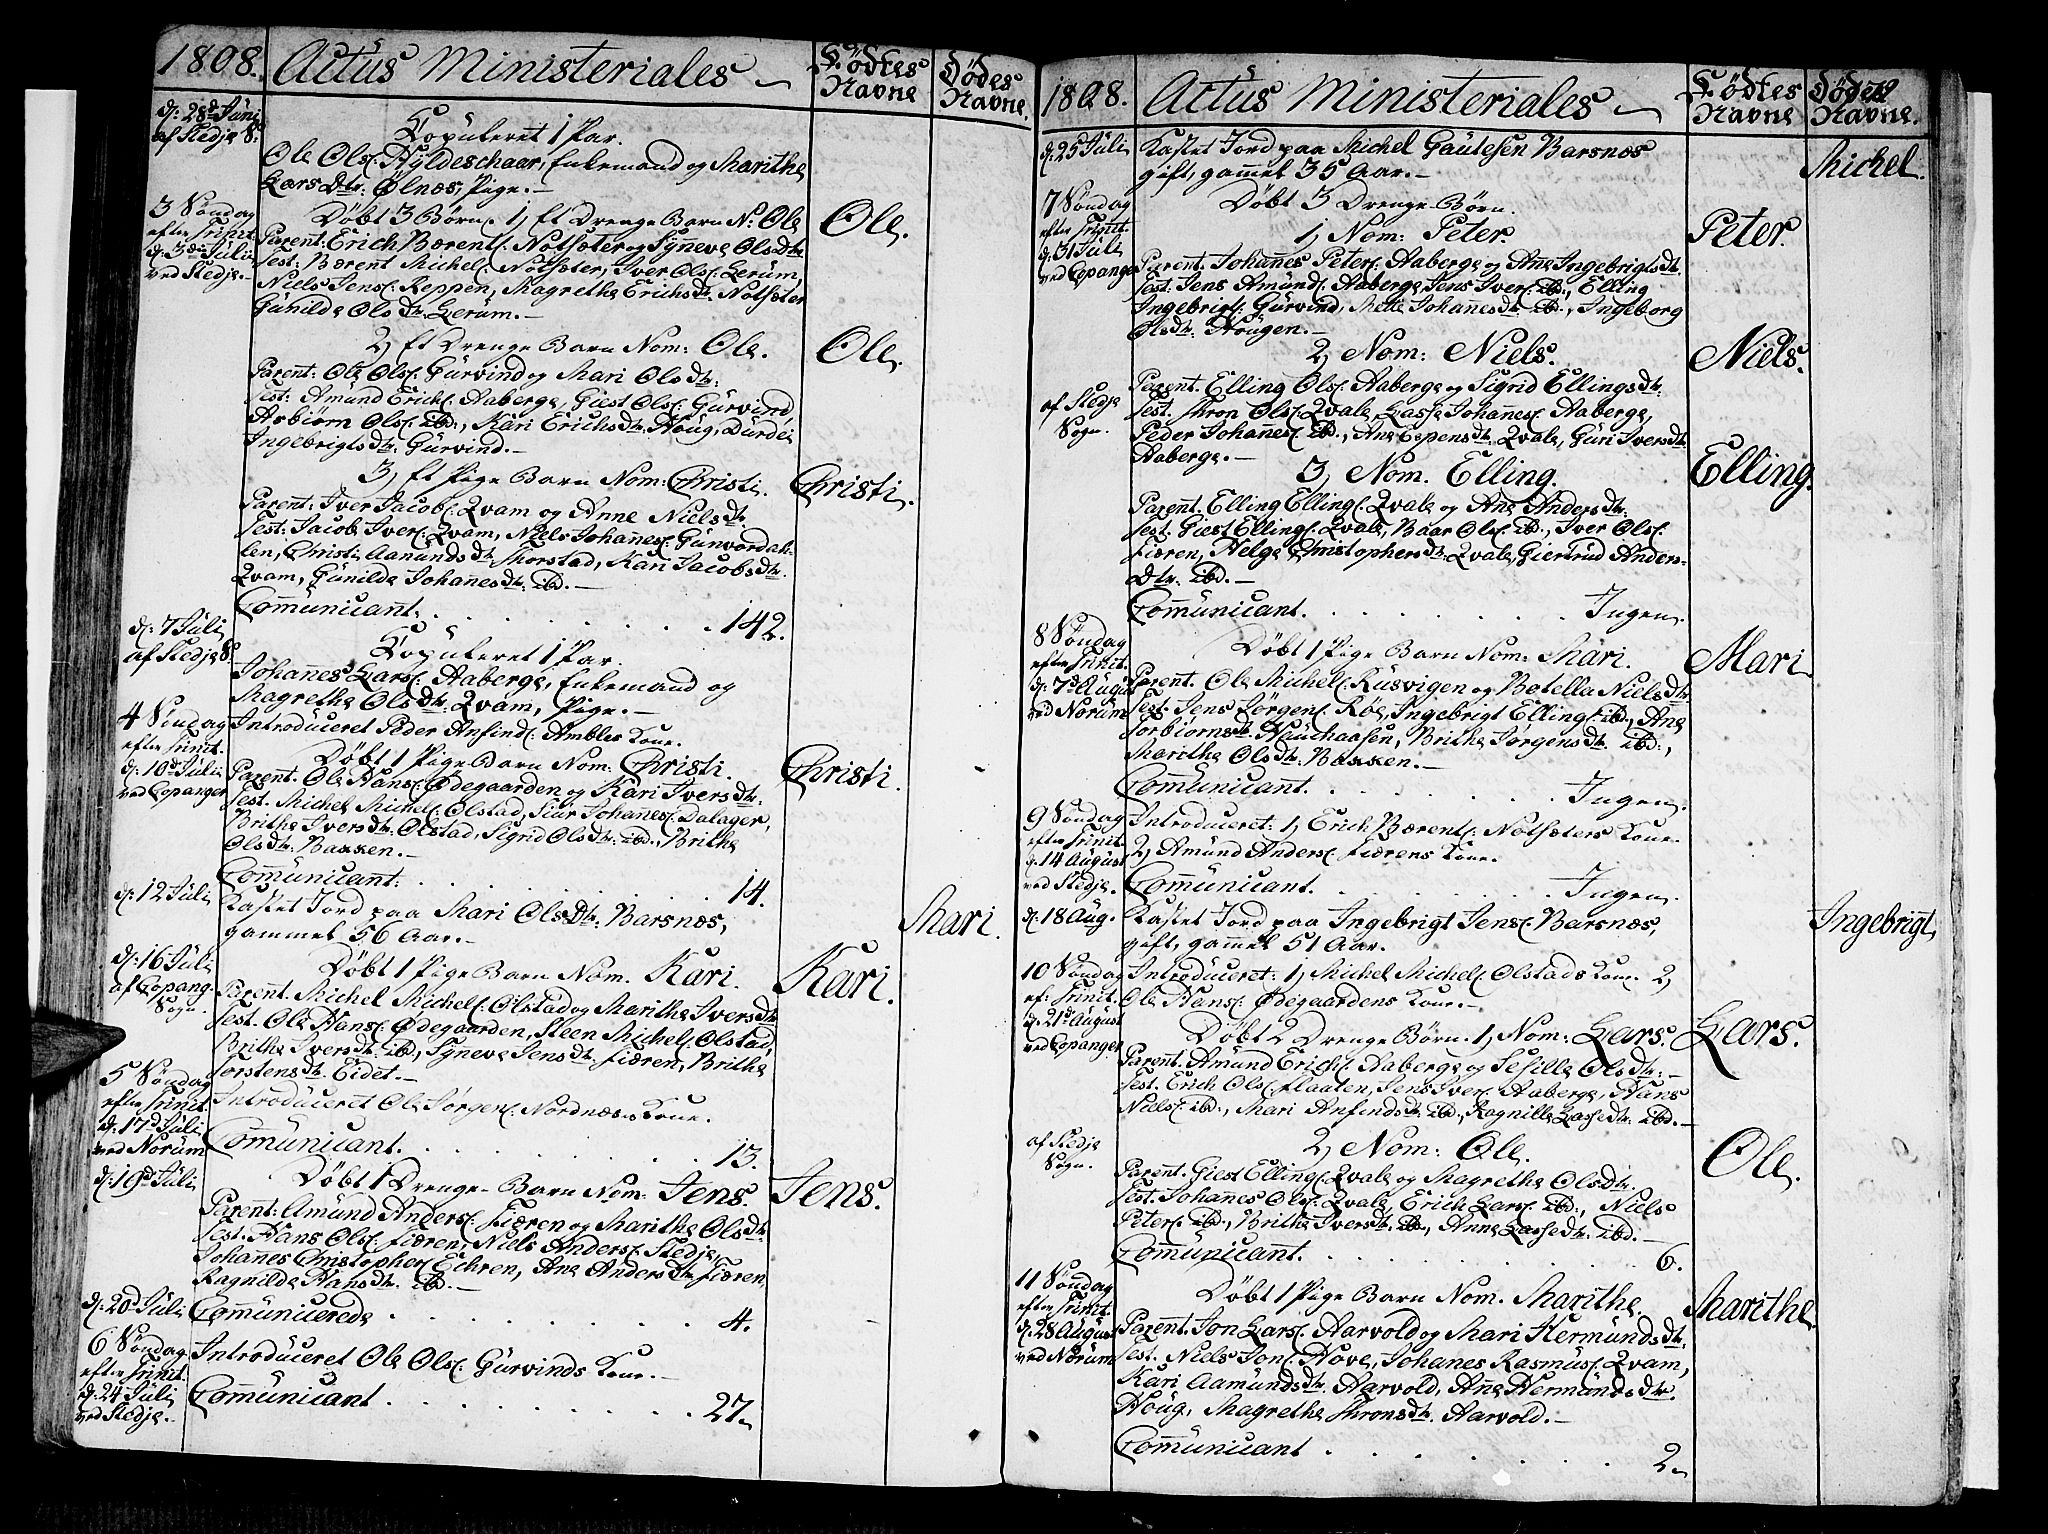 1808. Actus Ministeriales Födtes Navne Dödes Navne.
d: 28d Juni Copuleret 1 Par.
af Stedje S:
Ole Olsf: Hyldeschaar, Enkemand og Marithe
Lars Dtr. Ølnæs, Pige.
3 Söndag efter Trinit. d: 3die Julii ved Stedje.
Döbt 3 Börn. 1, Et Drenge Barn N: Ole Ole.
Parent: Erich Bærentsf. Notsæter og Sÿneve Olsdtr.
Test: Bærent Michelsf. Notsæter, Iver Olsf: Lerüm,
Niels Jensf. Reppen, Magrethe Erichsdtr. Notsæter
Günilde Olsdtr. Lerüm.
2, Et Drenge Barn Nom: Ole. Ole.
Parent: Ole Olsf: Gürvind og Mari Olsdtr:
Test: Amünd Erichsf. Aaberge, Giest Olsf: Gürvind,
Asbiörn Olsf: ibd:, Kari Erichsdtr. Houg, Dürdei
Ingebrigtsdtr: Gürvind.
3, Et Pige Barn Nom: Christi. Christi.
Parent: Iver Jacobsf. Qvam og Anne Nielsdtr.
Test: Jacob Iversf. Qvam, Niels Johanesf. Günvordahlen,
Christi Aamündsdtr. Thorstad, Kari Jacobsdtr.
Qvam, Günilde Johanesdtr: ibd.
Com̄ünicant: 142.
d: 7 Juli af Stedje S:
Copuleret 1 Par.
Johan̄es Larsf: Aaberge, Enkemand og
Magrethe Olsdtr: Qvam, Pige.
4 Söndag efter Trinit. d: 10d Julii ved Copanger
Introduceret Peder Ansindsf: Ambles Kone.
Döbt 1 Pige Barn Nom: Christi. Christi.
Parent. Ole Hansf: Ødegaarden og Kari Iversdtr.
Test. Michel Michelsf: Olstad, Siur Johanesf: Dalager,
Brithe Iversdtr: Olstad, Sigrid Olsdtr: ibd., Brithe
Olsdtr: Bakken.
Com̄ünicant: 14.
d: 12 Juli Kastet Jord paa Mari Olsdtr: Barsnæs, Mari.
gammel 56 Aar.
d: 16 Juli af Copang. Sogn.
Döbt 1 Pige Barn Nom. Kari. Kari.
Parent. Michel Michelsf: Olstad og Marithe Iversdtr.
Test. Ole Hansf: Ødegaarden, Steen Michelsf. Olstad,
Brithe Iversdtr: ibd, Sÿneve Jensdtr. Fiæren, Brithe
Torstensdtr. Eidet.
5 Söndag efter Trinit d: 17d Juli ved Norüm
Introduceret Ole Jörgensf: Nordnæs Kone.
Com̄ünicant. 13.
d: 19d Juli Döbt 1 Drenge Barn Nom: Jens. Jens.
Parent: Amünd Andersf: Fiæren og Marithe Olsdtr.
Test. Hans Olsf. Fiæren, Niels Andersf. Stedje,
Johan̄es Christophersf. Eehren, Ane Andersdtr. Fiæren,
Ragnilde Hansdtr. ibd.
d: 20d Juli Com̄ünicerede 4.
6 Söndag efter Trinit. d: 24 Juli ved Stedje.
Introduceret Ole Olsf: Gürvinds Kone.
Com̄ünicant 27
1808. Actus Ministeriales Födtes Navne Dödes Navne.
d: 25 Juli Kastet Jord paa Michel Gautesen Barsnæs Michel.
gift, gammel 35 Aar.
7 Söndag efter Trinit. d: 31 Juli ved Copanger
Döbt 3 Drenge-Börn.
1, Nom: Peter. Peter.
Parent. Johan̄es Petersf. Aaberge og Ane Ingebrigtsdtr.
Test. Jens Amündsf: Aaberge, Jens Iversf: ibd:, Elling
Ingebrigtsf: Gürvind, Mette Johan̄esdtr. ibd:, Ingeborg
Olsdtr: Hougen.
2, Nom: Niels. Niels.
af Stedje Sogn.
Parent. Elling Olsf: Aaberge og Sigrid Ellingsdtr.
Test. Thron Olsf: Qvale, Lasse Johan̄esf. Aaberge,
Peder Johan̄esf. ibd., Ane Espensdtr. Qvale, Guri Iversdtr.
Aaberge.
3, Nom. Elling. Elling.
Parent. Elling Ellingsf: Qvale og Ane Andersdtr.
Test. Giest Ellingsf. Qvale, Baar Olsf. ibd., Iver Olsf.
Fiæren, Helge Christophersdtr. Qvale, Giertrud Anders-
Dtr. ibd.
Com̄ünicant. Ingen.
8 Söndag efter Trinit. d: 7d Augüst ved Norüm
Döbt 1 Pige Barn Nom: Mari. Mari
Parent. Ole Michelsf: Küsvigen og Botella Nielsdtr
Test. Jens Jörgensf. Röe, Ingebrigt Ellingsf: ibd., Ane
Torbiörnsdtr. Hauchaasen, Brithe Jörgensdtr. ibd:,
Marithe Olsdtr: Bakken.
Com̄unicant. Ingen.
9 Söndag efter Trinit. d: 14 August ved Stedje.
Introduceret: 1, Erich Bærentsf: Notsæters Kone
2, Amünd Andersf: Fiærens Kone.
Com̄ünicant. Ingen.
d: 18 Aug. Kastet Jord paa Ingebrigt Jensf: Barsnæs, Ingebrigt
gift, gammel 51 Aar.
10 Söndag ef: Trinit. d: 21d August ved Copanger
Introduceret: 1, Michel Michelsf: Olstads Kone 2,
Ole Hansf: Ødegaardens Kone.
Döbt 2 Drenge Börn. 1, Nom: Lars. Lars.
Parent. Amünd Erichsf: Aaberge og Sesille Olsdtr:
Test. Erich Olsf. Flaaten, Jens Iversf. Aaberge, Hans
Nielsf: ibd., Mari Ansindsdtr. ibd., Ragnille Lassedtr: ibd.
2, Nom: Ole. Ole.
af Stedje Sogn.
Parent. Giest Ellingsf. Qvale og Magrethe Olsdtr.
Test. Johanes Olsf: Qvale, Erich Larsf. ibd:, Niels
Petersf: ibd:, Brithe Iversdtr. ibd., Anne Lassedtr. ibd.
Com̄ünicant. 6.
11 Söndag efter Trinit. d: 28 August ved Norüm
Döbt 1 Pige Barn Nom. Marithe. Marithe.
Parent. Jon Larsf. Aarvold og Mari Hermündsdtr.
Test. Niels Jonsf. Hove, Johanes Rasmusf. Qvam,
Kari Aamündsdtr. Aarvold, Ane Hermündsdtr.
Houg, Magrethe Thronsdtr. Aarvold.
Com̄ünicant 2